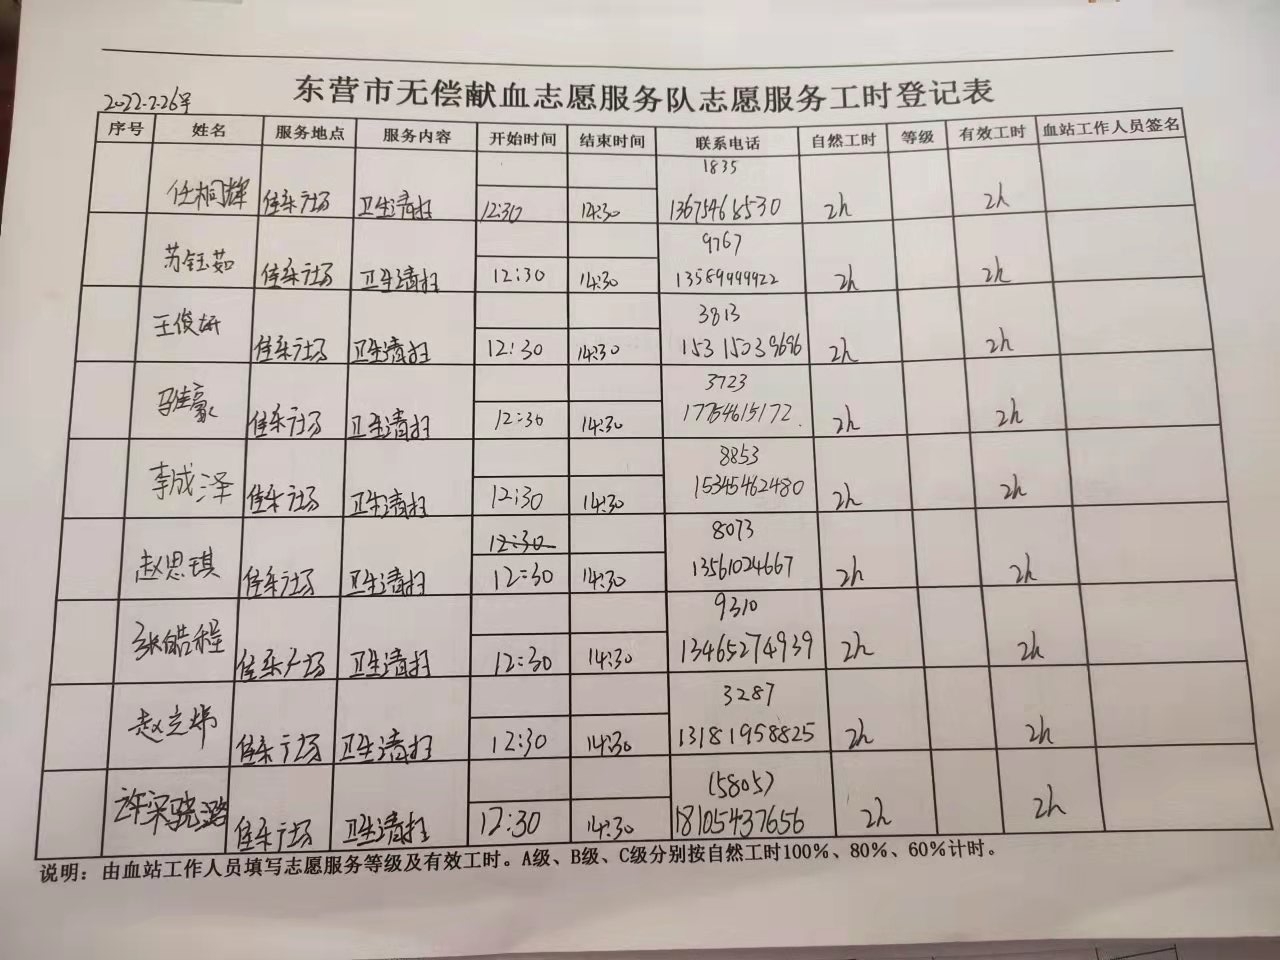 东营市无偿献血志愿服务队志愿服务工时登记表
2022.2.26号
序号 姓名 服务地点 服务内容 开始时间 结束时间 联系电话 自然工时 等级 有效工时 血站工作人员签名
1835
任桐辉 佳乐广场 卫生清扫 12:30 14:30 13675468530 2h 2h
9767
苏钰茹 佳乐广场 卫生清扫 12:30 14:30 13589999922 2h 2h
3813
王俊妍 佳乐广场 卫生清扫 12:30 14:30 15315039696 2h 2h
3723
马佳豪 佳乐广场 卫生清扫 12:30 14:30 17754615172. 2h 2h
8853
李成泽 佳乐广场 卫生清扫 12:30 14:30 15345462480 2h 2h
12:30 8073
赵思琪 佳乐广场 卫生清扫 12:30 14:30 13561024667 2h 2h
9310
张皓程 佳乐广场 卫生清扫 12:30 14:30 13465274939 2h 2h
3287
赵立炜 佳乐广场 卫生清扫 12:30 14:30 13181958825 2h 2h
(5805)
许梁骁潞 佳乐广场 卫生清扫 12:30 14:30 18105437656 2h 2h
说明：由血站工作人员填写志愿服务等级及有效工时。A级、B级、C级分别按自然工时100%、80%、60%计时。